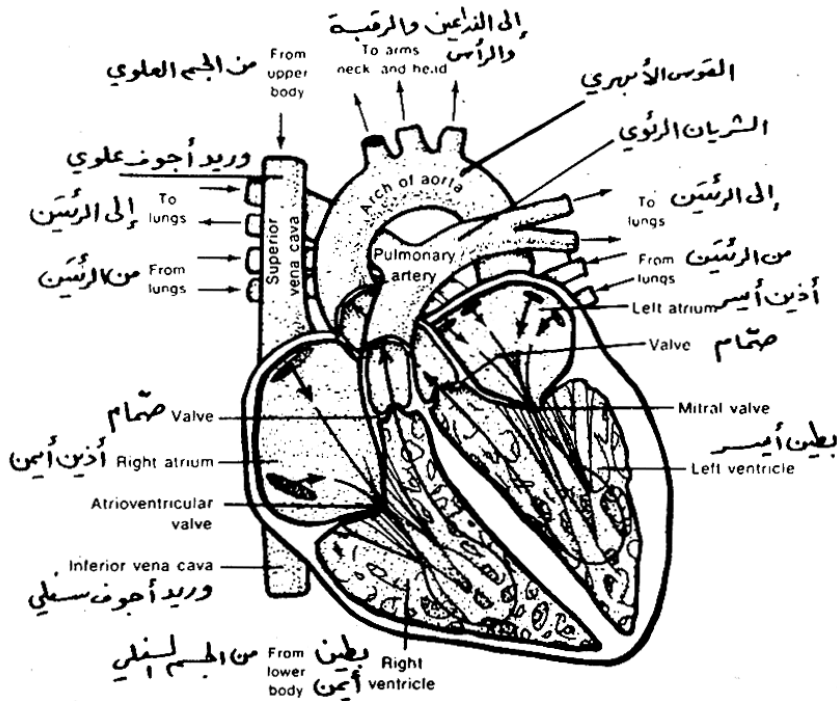 إلى الذراعين والرقبة
والرأس
To arms
neck and head
من الجسم العلوي
From
upper
body
القوس الأبهري
الشريان الرئوي
وريد أجوف علوي
Arch of aorta
To
lungs
إلى الرئتين
To
lungs
إلى الرئتين
Superior
vena cava
Pulmonary
artery
من الرئتين
From
lungs
من الرئتين
From
lungs
Left atrium
أذين أيسر
Valve
صمّام
صمّام
Valve
Mitral valve
بطين أيسر
Left ventricle
أذين أيمن
Right atrium
Atrioventricular
valve
Inferior vena cava
وريد أجوف سفلي
من الجسم السفلي
From
lower
body
بطين
أيمن
Right
ventricle